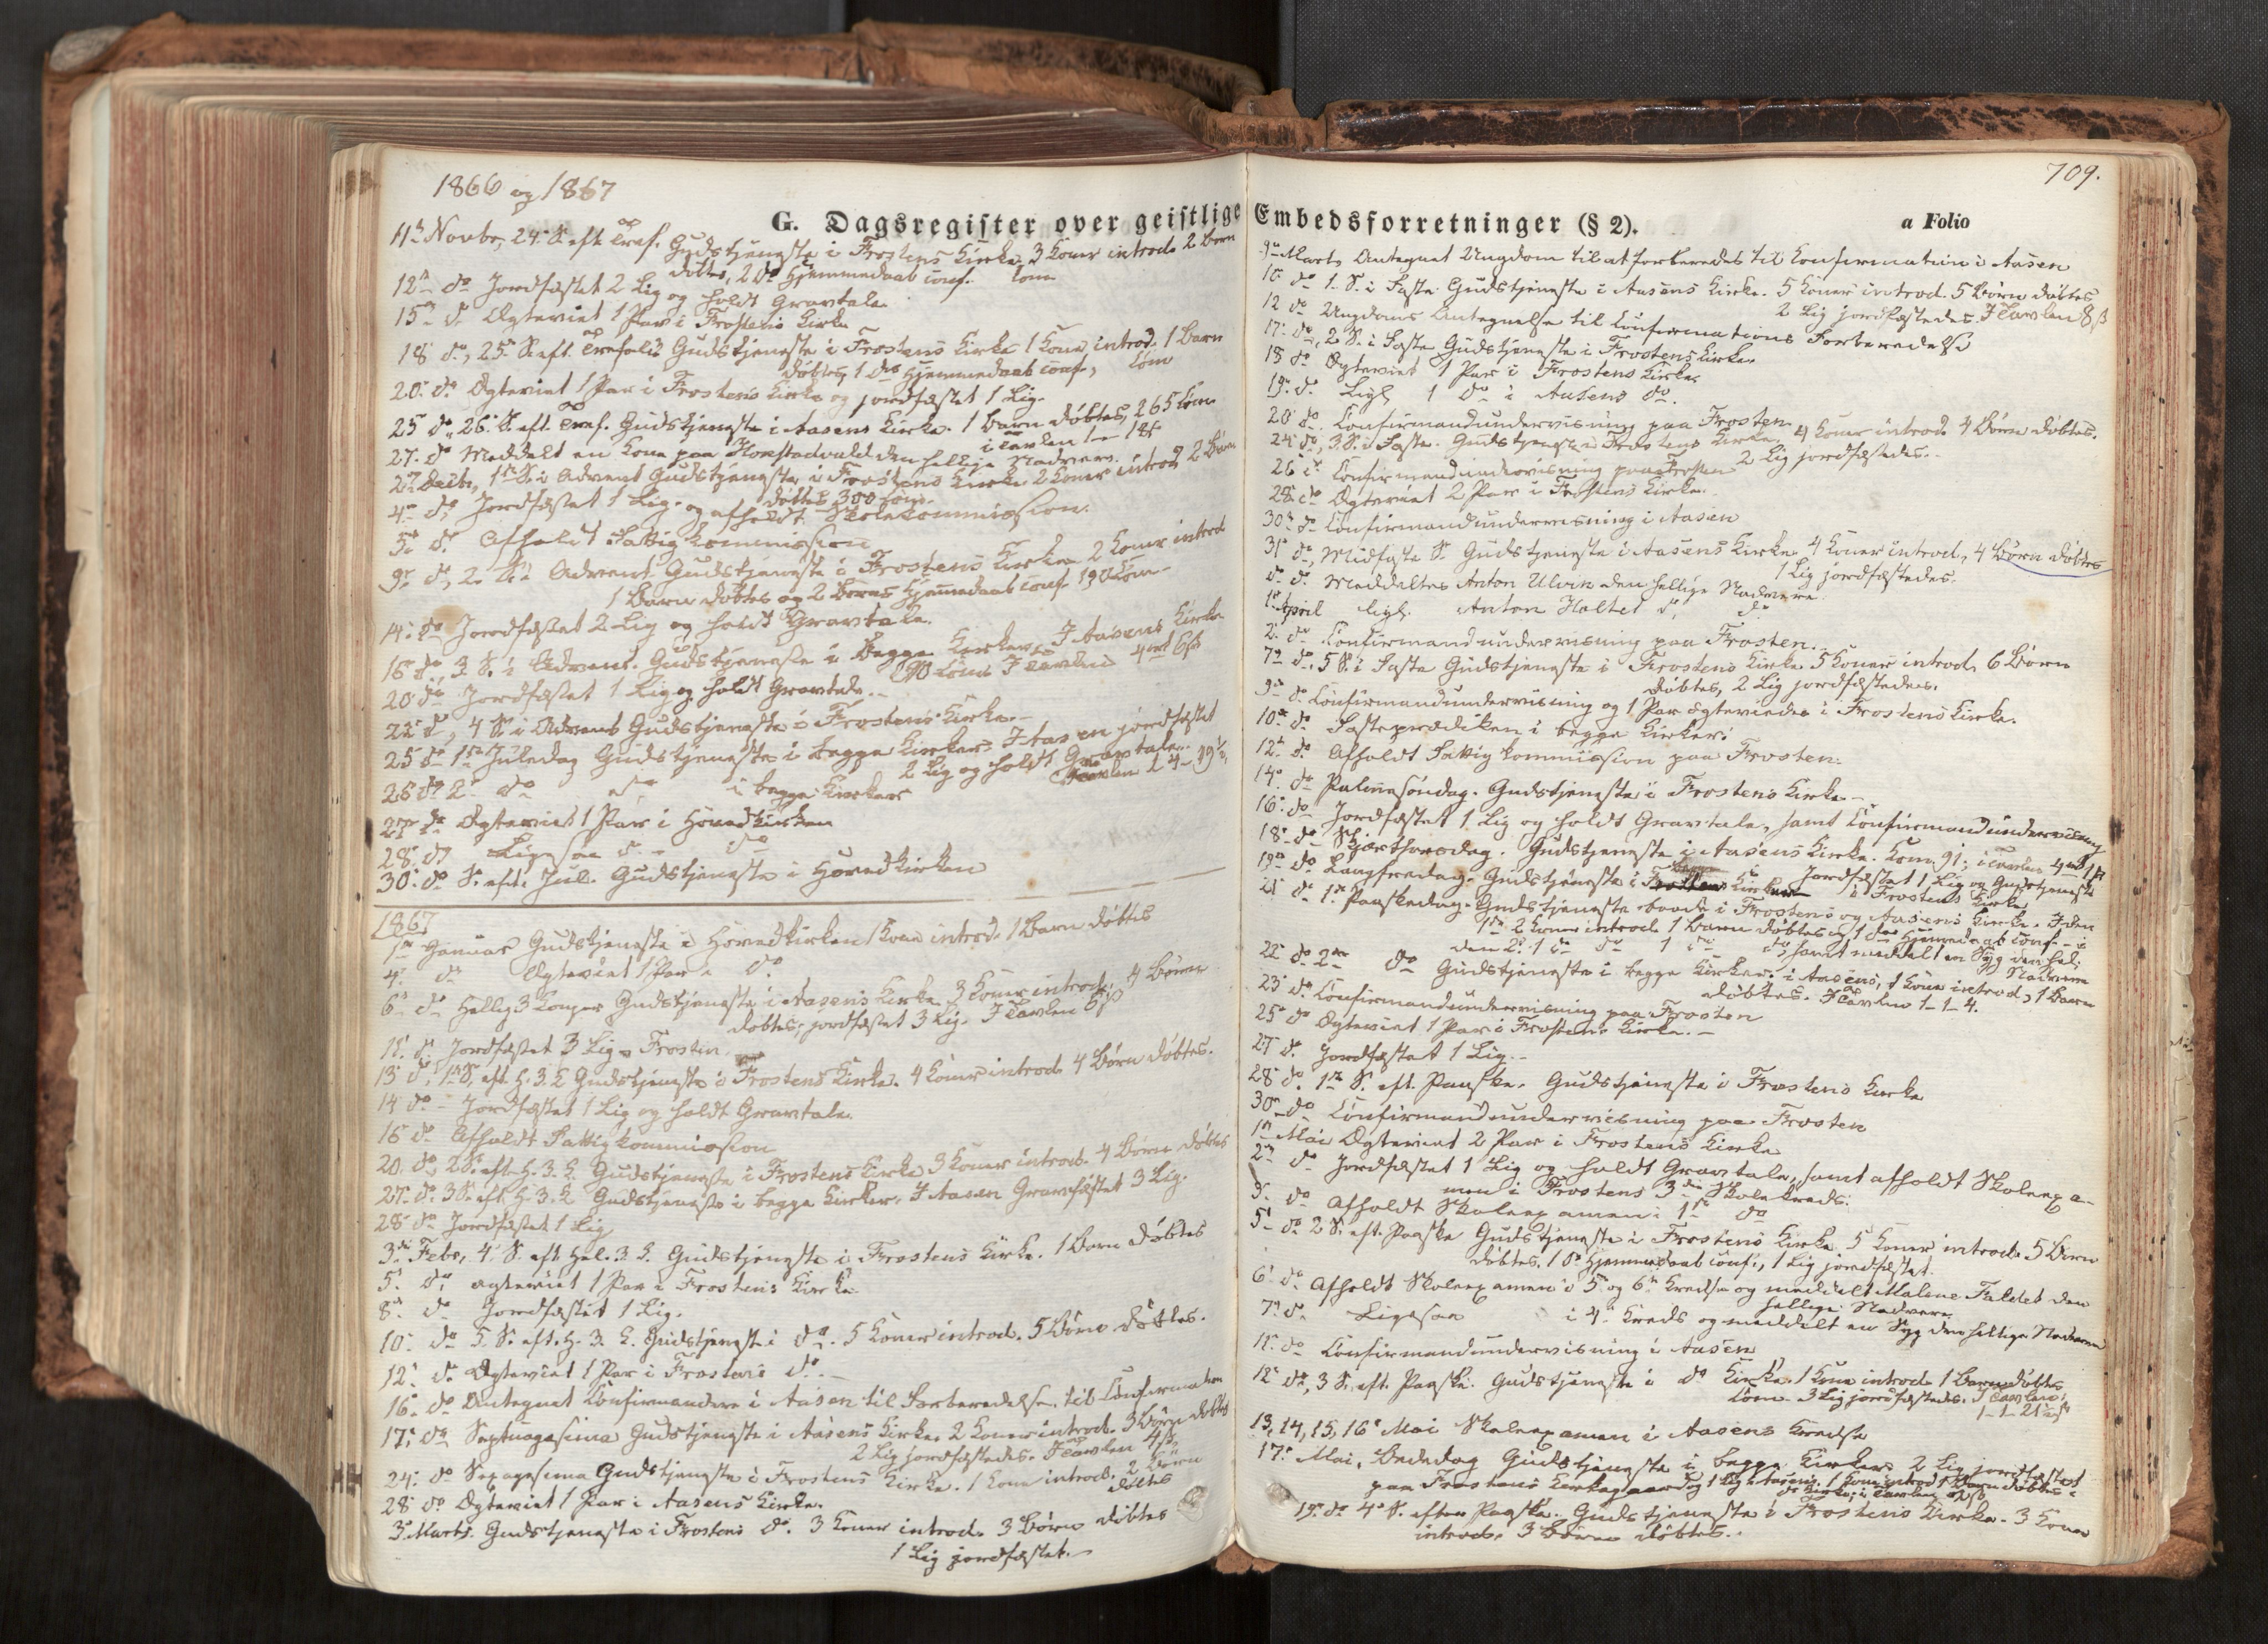 1866 og 1867
G. Dagsregister over geistlige
11te Novbr, 24. S. eft. Tref. Gudstjeneste i Frostens Kirke, 3 Koner introd. 2 Børn
døbtes, 2 do Hjemmedaab conf. Com
12te do Jordfæstet 2 Lig og holdt Gravtale.
15de do Ægteviet 1 Par i Frostens Kirke
18 do, 25. S. eft. Trefol. Gudstjeneste i Frostens Kirke 1 Kone introd. 1 Barn
døbtes, 1 do Hjemmedaab conf, Com
20. do Ægteviet 1 Par i Frostens Kirke og jordfæstet 1 Lig.
25 do, 26. S. eft. Tref. Gudstjeneste i Aasens Kirke. 1 Barn døbtes, 265 Com.
i Tavlen 1 - 18
27. do Meddelt en Kone paa Hokstadvald den hellige Nadvere.
2. Decbr, 1ste S. i Advent Gudstjeneste i Frostens Kirke 2 Koner introd 2 Børn
døbtes 300 Com.
4. do Jordfæstet 1 Lig. og afholdt Skolekommission.
5. do Afholdt Fattigkommission
9. do, 2. S. i Advent Gudstjeneste i Frostens Kirke 2 Koner introd
1 Barn døbtes og 2 Børns Hjemmedaab conf. 190 Com
14. do Jordfæstet 2 Lig og holdt Gravtale.
16 do, 3 S. i Advent. Gudstjeneste i begge Kirker, I Aasens Kirke
90 Com. I Tavlen 4 6 ß
20 do Jordfæstet 1 Lig og holdt Gravtale.
22 do, 4 S. i Advent Gudstjeneste i Frostens Kirke.
25 do 1ste Juledag Gudstjeneste i begge Kirker. I Aasen jordfæstet
2 Lig og holdt Gravtale.
26 do 2. do do i begge Kirker Tavlen 1-4-19½
27 do Ægteviet 1 Par i Hovedkirken
28. do Ligesaa do. do
30. do S. eft. Jul. Gudstjeneste i Hovedkirken
1867
1ste Januar Gudstjeneste i Hovedkirken 1 Kone introd. 1 Barn døbtes
4. do Ægteviet 1 Par i do.
6. do Hellig 3 Konger Gudstjeneste i Aasens Kirke 3 Koner introd. 4 Børn
døbtes, jordfæstet 3 Lig. I Tavlen 8 ß
11. do Jordfæstet 3 Lig i Frosten
13 do, 1ste S. eft. H. 3. K Gudstjeneste i Frostens Kirke. 4 Koner introd. 4 Børn døbtes.
14 do Jordfæstet 1 Lig og holdt Gravtale.
16 do Afholdt Fattigkommission
20. do, 2 S. eft. H. 3. K. Gudstjeneste i Frostens Kirke 3 Koner introd. 4 Børn døbtes
27. do. 3 S. eft. H. 3. K Gudstjeneste i begge Kirker. I Aasen Gravfæstet 3 Lig.
28 do Jordfæstet 1 Lig
3die Febr, 4. S. eft Hel. 3. K. Gudstjeneste i Frostens Kirke. 1 Barn døbtes
5. do, ægteviet 1 Par i Frostens Kirke
8. do Jordfæstet 1 Lig.
10. do 5. S. eft. H. 3. K. Gudstjeneste i do. 5 Koner introd. 5 Børn døbtes.
12. do Ægteviet 1 Par i Frostens do.
16. do Antegnet Confirmandere i Aasen til Forberedelse til Confirmation
17. do Septuagesima Gudstjeneste i Aasens Kirke. 2 Koner introd. 3 Børn døbtes
2 Lig jordfæstedes. I Tavlen 4 ß.
24. do Sexagesima Gudstjeneste i Frostens Kirke. 1 Kone introd. 2 Børn
døbtes
28 do Ægteviet 1 Par i Aasens Kirke.
3. Marts. Gudstjeneste i Frostens do. 3 Koner introd. 3 Børn døbtes
1 Lig jordfæstet.
709.
Embedsforretninger (§ 2). a Folio
9. Marts Antegnet Ungdom til at forberedes til Confirmation i Aasen
10 do 1. S. i Faste Gudstjeneste i Aasens Kirke. 5 Koner introd. 5 Børn døbtes
2 Lig jordfæstedes. I Tavlen 8 ß
12 do Ungdoms Antegnelse til Confirmations Forberedelse
17. do, 2 S. i Faste Gudstjeneste i Frostens Kirke.
18 do Ægteviet 1 Par i Frostens Kirke.
19. do. Ligl. 1 do i Aasens do.
20 do. Confirmandundervisning paa Frosten
24. do, 3. S. i Faste. Gudstjeneste i Frostens Kirke, 4 Koner introd. 4 Børn døbtes.
2 Lig jordfæstedes.
26 do. Confirmandundervisning paa Frosten
28. do Ægteviet 2 Par i Frostens Kirke.
30. do Confirmandundervisning i Aasen
31. do, Midfaste S. Gudstjeneste i Aasens Kirke. 4 Koner introd, 4 Børn døbtes
1 Lig jordfæstedes.
do do. Meddeltes Anton Ulvin den hellige Nadvere
1. April ligl. Anton Holtet do, do
2. do Confirmandundervisning paa Frosten.
7. do, 5 S. i Faste Gudstjeneste i Frostens Kirke 5 Koner introd, 6 Børn
døbtes, 2 Lig jordfæstedes.
9. do Confirmandundervisning og 1 Par ægteviedes i Frostens Kirke.
10. do Fasteprædiken i begge Kirker.
12. do Afholdt Fattigkommission paa Frosten.
14. do Palmesøndag. Gudstjeneste i Frostens Kirke
16. do Jordfæstet 1 Lig og holdt Gravtale, samt Confirmandundervisning
18. do Skjærthorsdag. Gudstjeneste i Aasens Kirke. Kom. 91. i Tavlen 4 1 ß
Jordfæstet 1 Lig og Gudstjeneste
i Frostens Kirke
19. do Langfredag. Gudstjeneste i begge Kirker
21 do 1. Paaskedag. Gudstjeneste baade i Frostens og Aasens Kirke. I den
1ste 2 Koner introd. 1 Barn døbtes og 1 do Hjemmedaab conf. i
den 2. 1 do do 1 do do, samt meddelt en Syg den hel.
Nadvere
22 do 2den do Gudstjeneste i begge Kirker. i Aasens, 1 Kone introd, 1 Barn
døbtes. I Tavlen 1-1-4.
23 do. Confirmandundervisning paa Frosten
25 do Ægteviet 1 Par i Frostens Kirke.
27 do. Jordfæstet 1 Lig.
28 do. 1ste S. eft. Paaske. Gudstjeneste i Frostens Kirke
30 do Confirmandundervisning paa Frosten
1ste Mai Ægteviet 2 Par i Frostens Kirke
2. do Jordfæstet 1 Lig og holdt Gravtale, samt afholdt Skoleexa-
men i Frostens 3die Skolekreds.
3. do Afholdt Skoleexamen i 1ste do
5. do 2 S. eft. Paaske Gudstjeneste i Frostens Kirke. 5 Koner introd. 5 Børn
døbtes. 1 do Hjemmedaab conf., 1 Lig jordfæstet.
6. do Afholdt Skoleexamen i 5. og 6. Kredse og meddelt Malene Faldet den
hellige Nadvere
7. do Ligesaa i 4. Kreds og meddelt en Syg den hellige Nadvere
11. do Confirmandundervisning i Aasen
12. do, 3 S. eft. Paaske. Gudstjeneste i do Kirke. 1 Kone introd. 1 Barn døbtes
Com. 3 Lig jordfæstedes. I Tavlen
1-1-21
13, 14, 15, 16. Mai Skoleexamen i Aasens Kredse
17. Mai, Bededag Gudstjeneste i begge Kirker. 2 Lig jordfæstet
paa Frostens Kirkegaard og 1 Lig i Aasens. 1 Kone introd. 1 Barn døbtes i
do Kirke; i Tavlen
19. do 4. S. efter Paaske. Gudstjeneste i Frostens Kirke. 3 Koner
introd. 3 Børn døbtes.